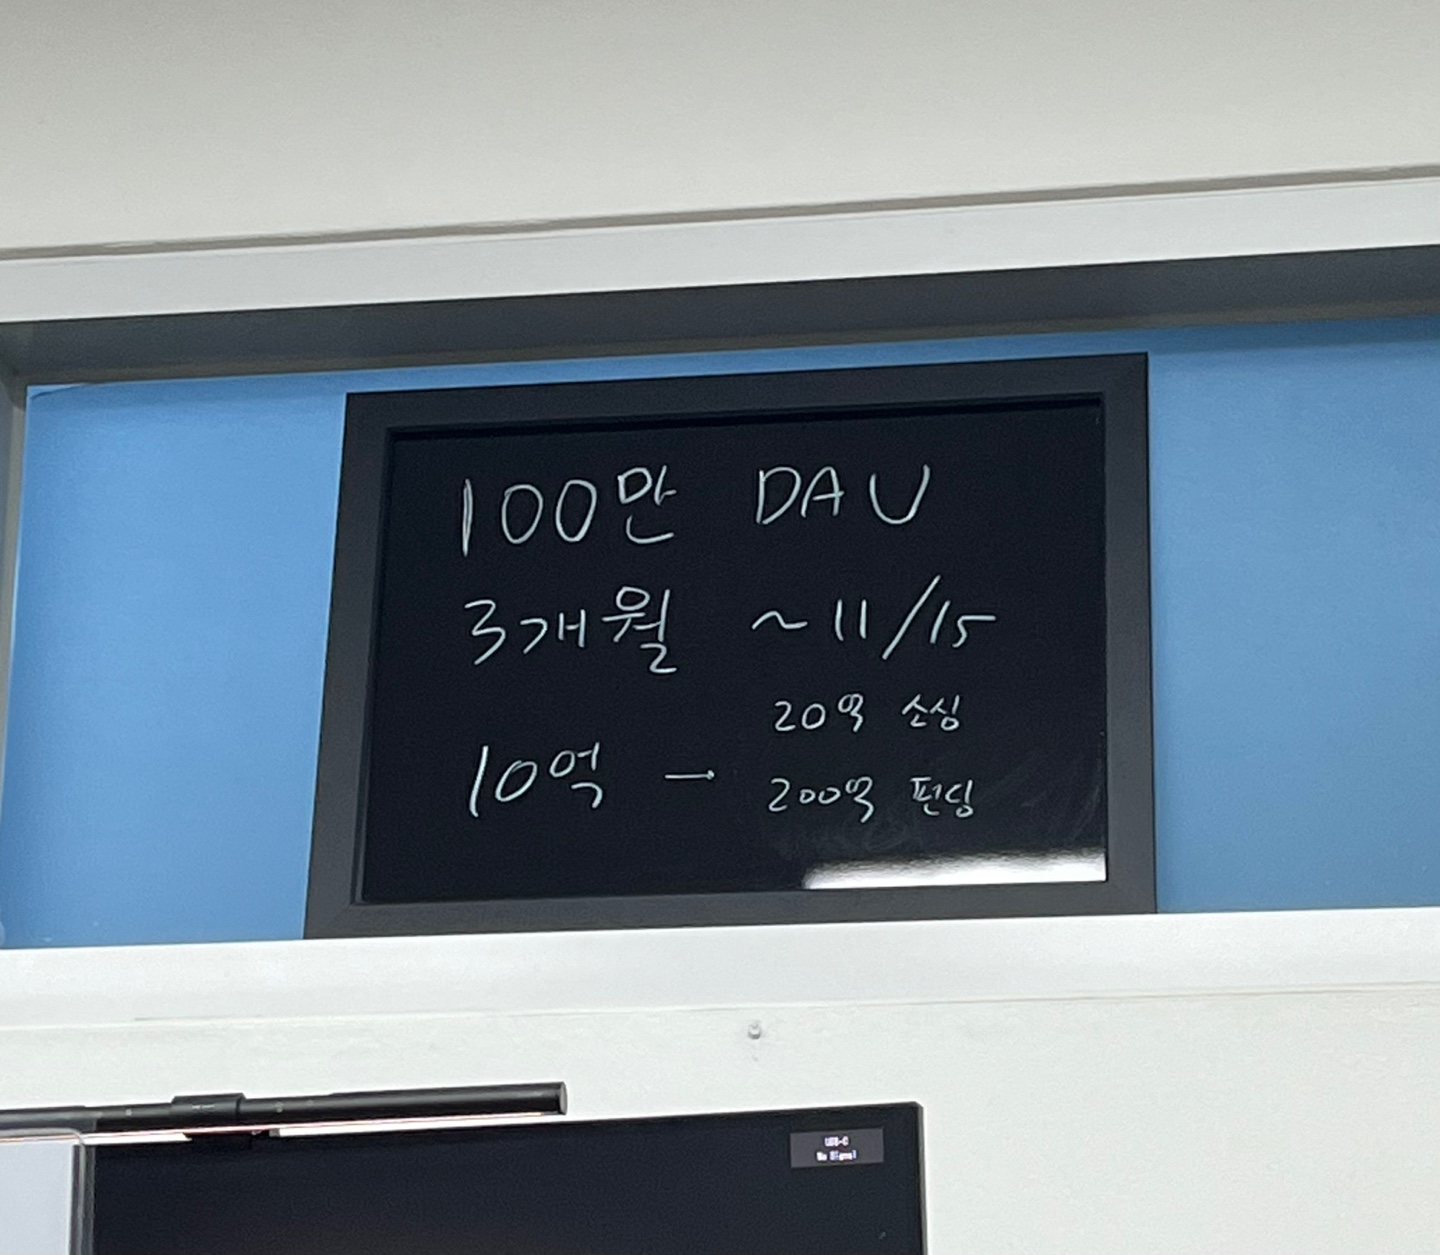 100만 DAU
3개월 ~11/15
10억 → 20억 소싱
200억 펀딩
USB-C
No Signal